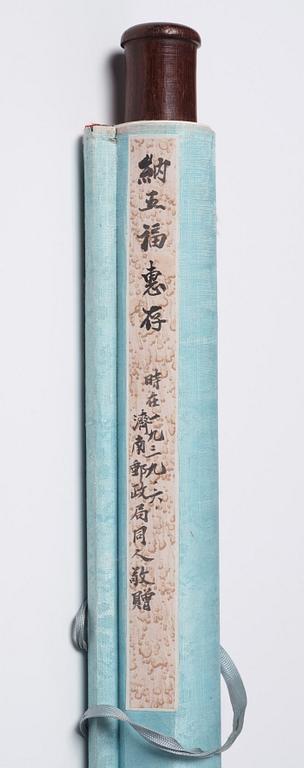 納五福惠存
時在一九三九、六
濟南郵政局同人敬贈